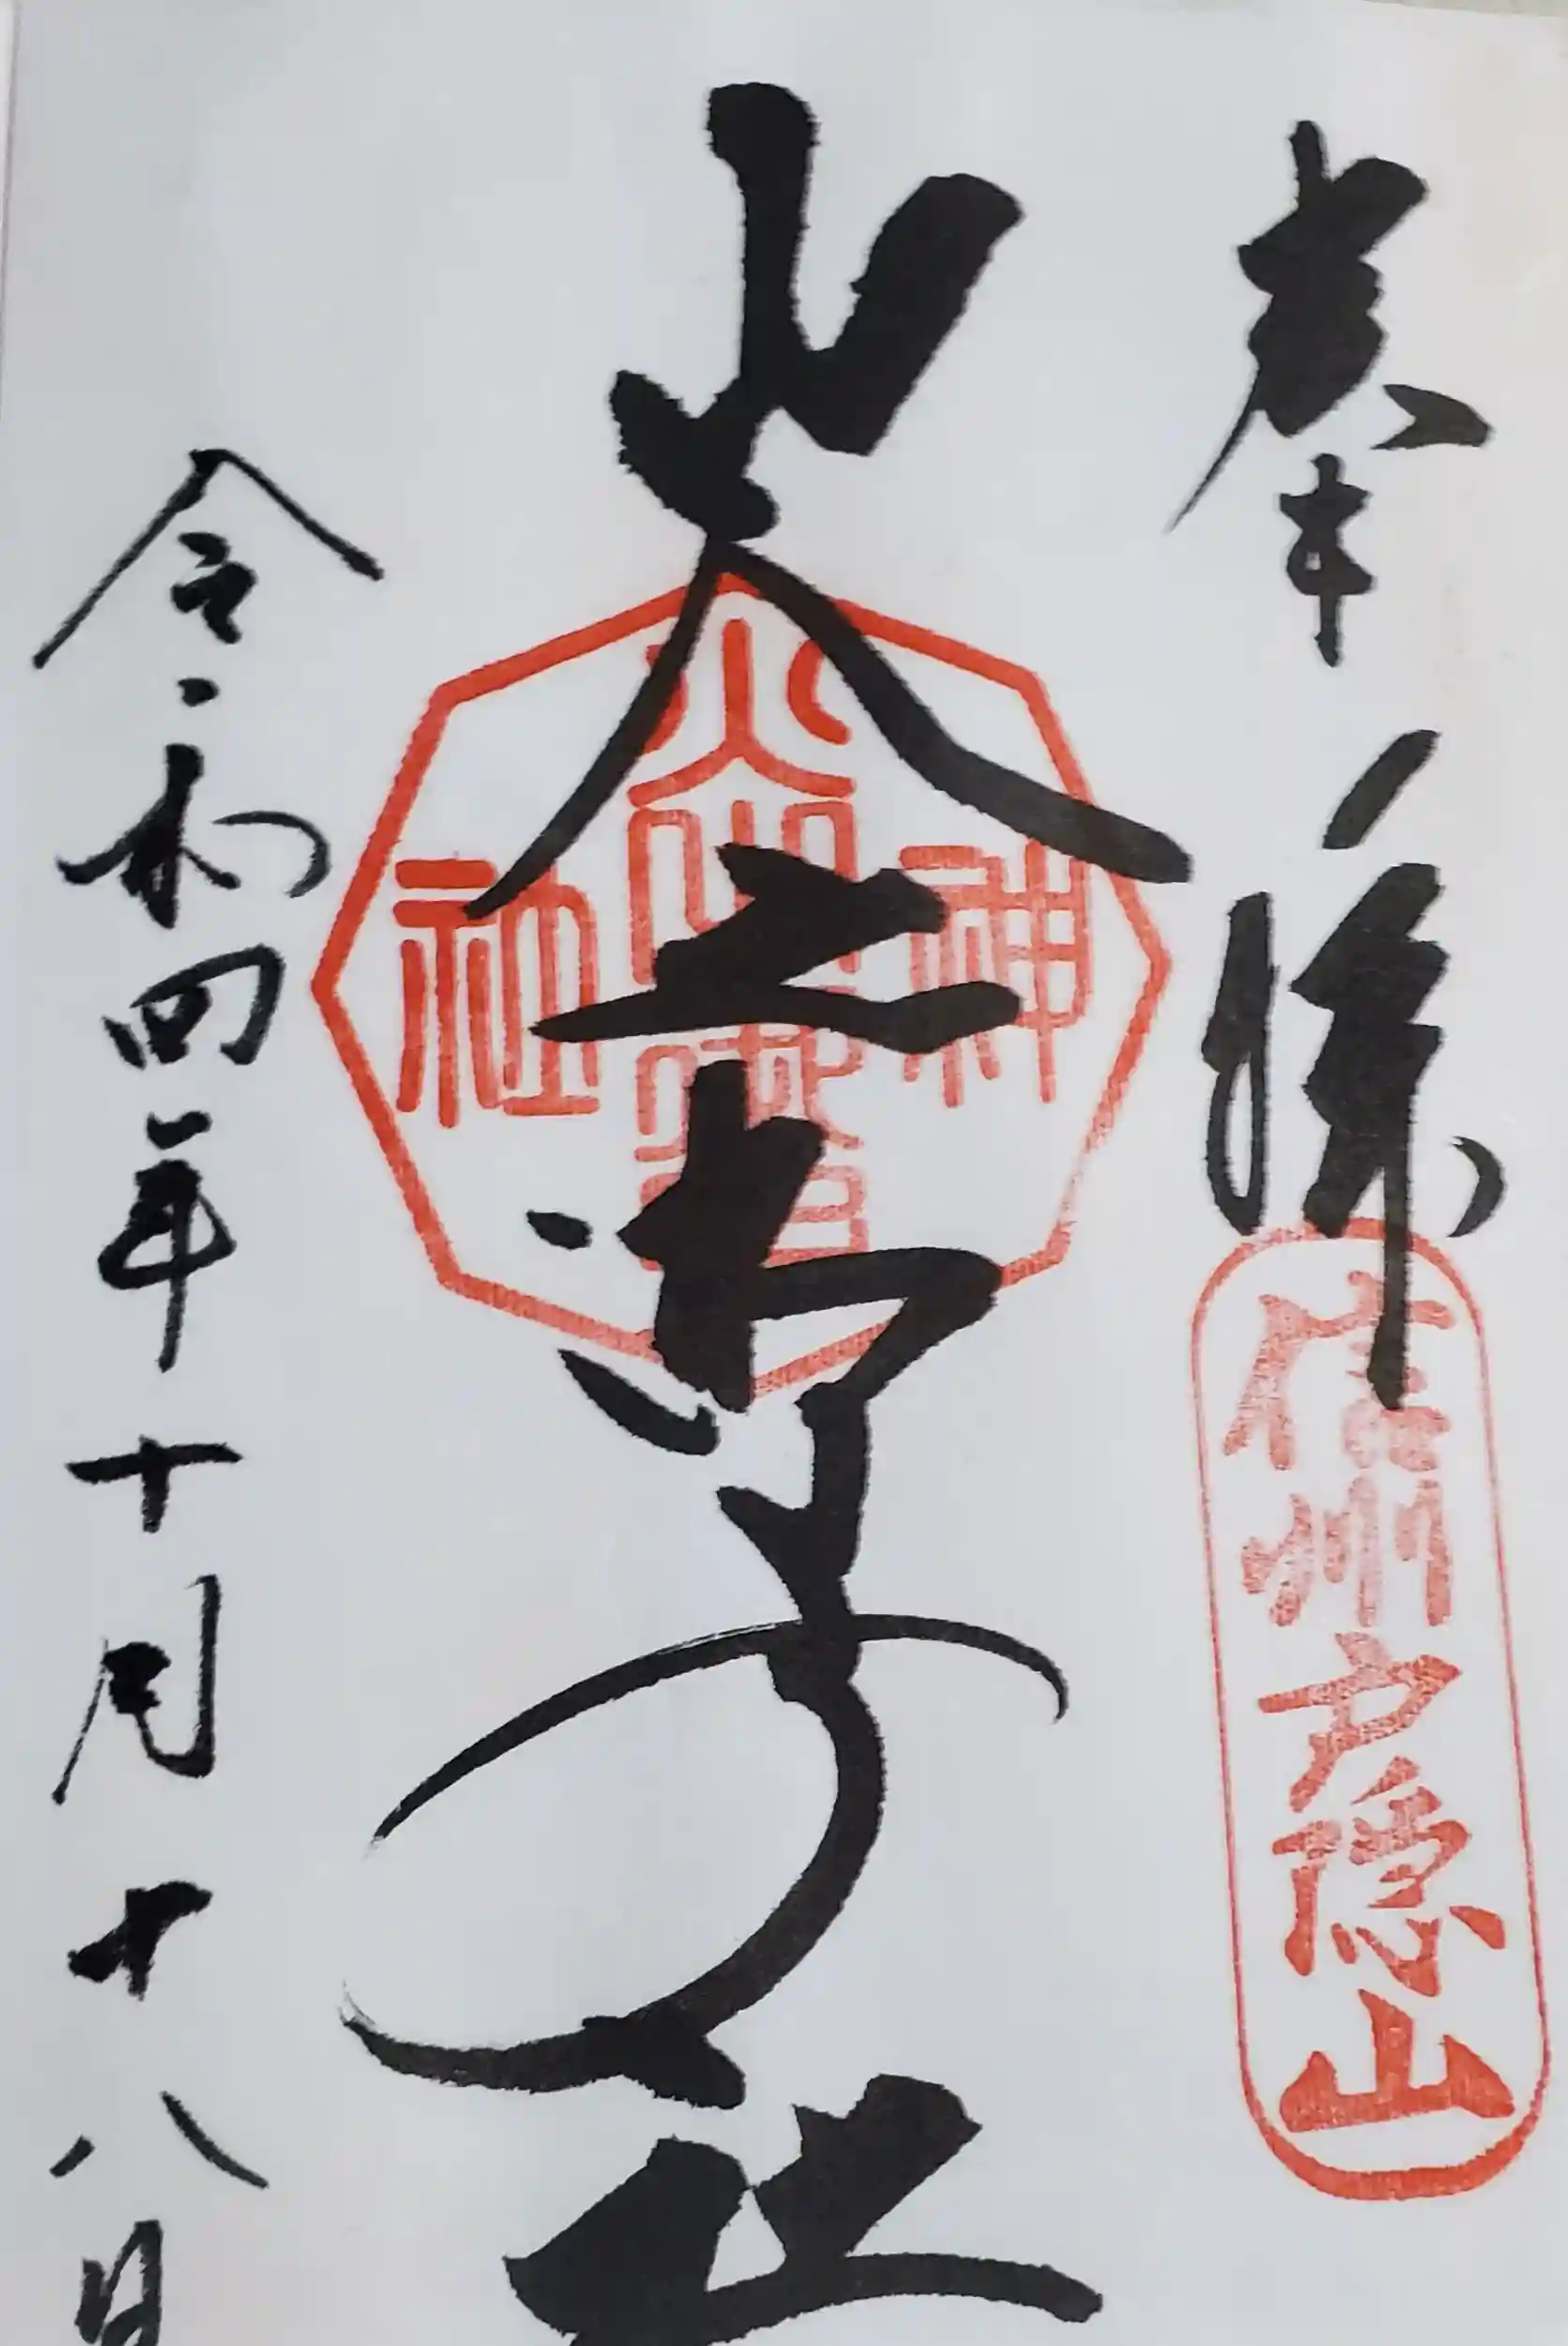 奉拝
信州戸隠山
火之御子社
令和四年十月十八日